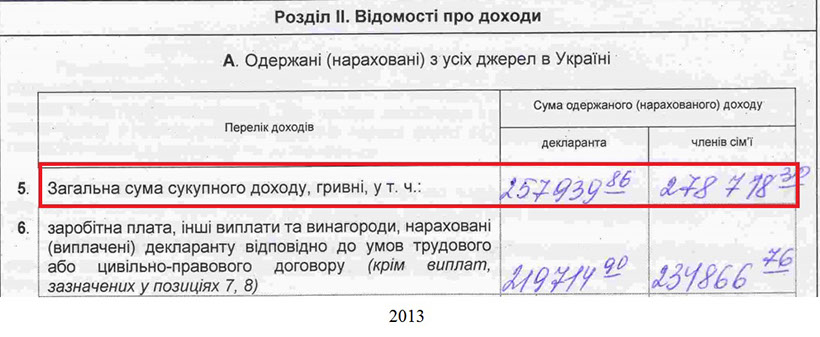 Розділ II. Відомості про доходи
А. Одержані (нараховані) з усіх джерел в Україні
Перелік доходів
Сума одержаного (нарахованого) доходу
декларанта
членів сім’ї
5. Загальна сума сукупного доходу, гривні, у т. ч.: 257939 86 278 798 30
6. заробітна плата, інші виплати та винагороди, нараховані
(виплачені) декларанту відповідно до умов трудового
або цивільно-правового договору (крім виплат,
зазначених у позиціях 7, 8) 219714 90 234866 76
2013